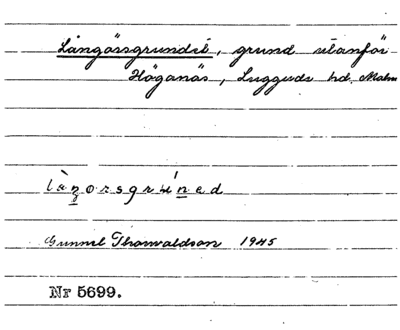 Långörsgrundet, grund utanför
Höganäs, Luggude hd. Malm
Gunnel Thorwaldson 1945
Nr 5699.